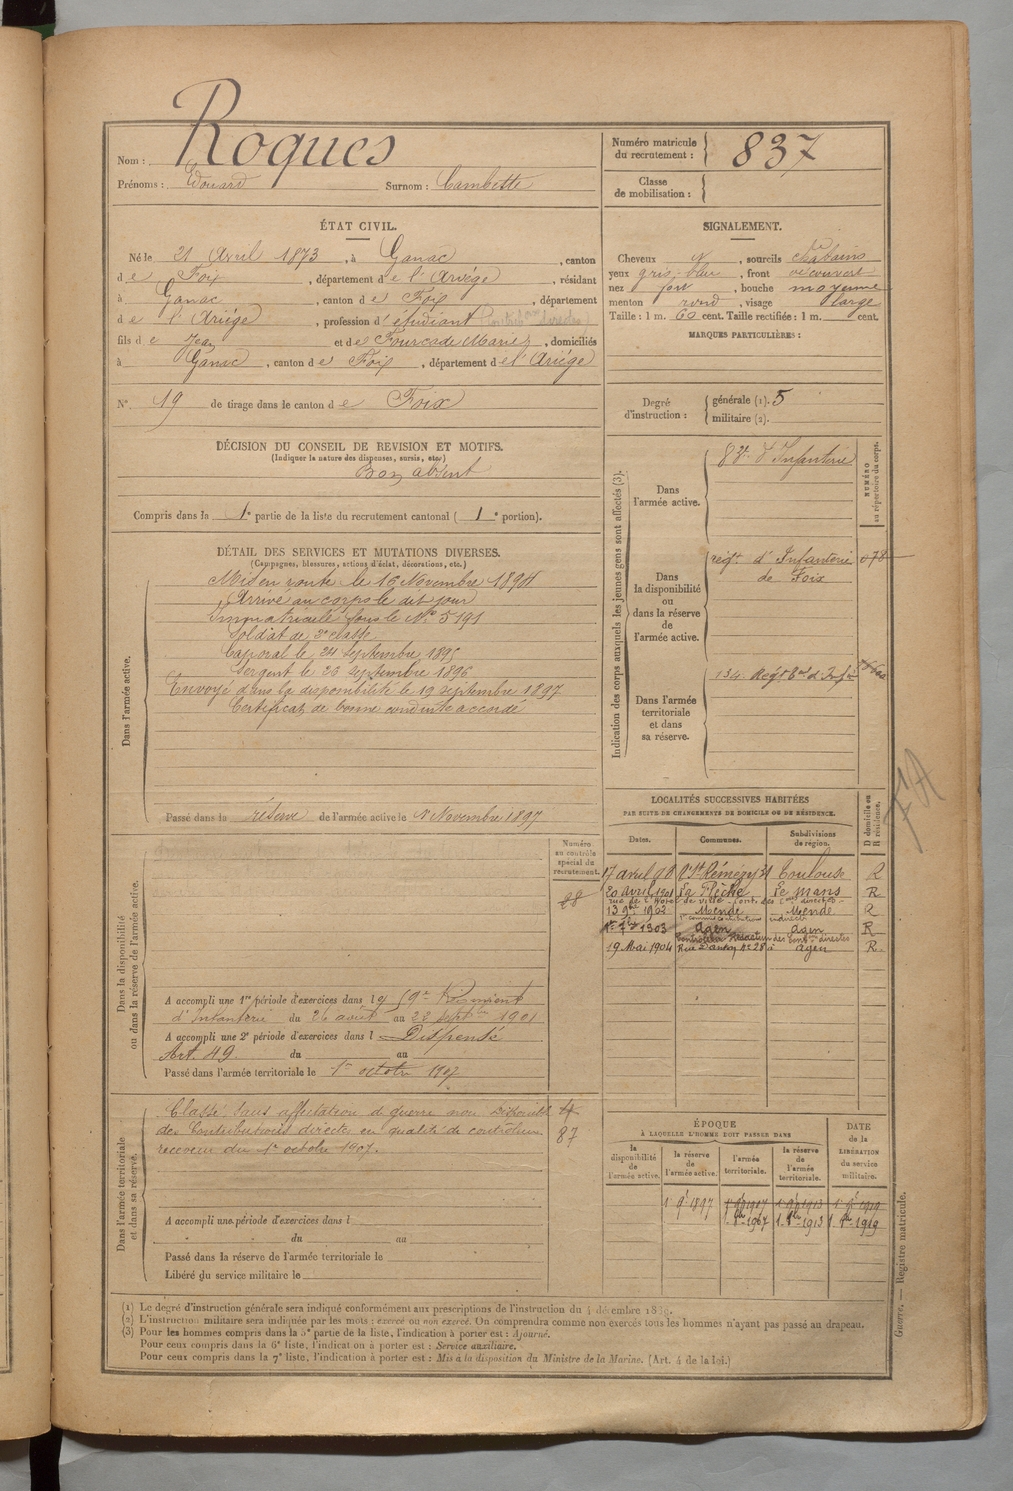 Nom : Roques
Prénoms : Edouard Surnom : Cambette
Numéro matricule du recrutement : 837
Classe de mobilisation :
ÉTAT CIVIL.
Né le 21 Avril 1873, à Ganac, canton
de Foix, département de l'Ariége, résidant
à Ganac, canton de Foix, département
de l'Ariége, profession d'étudiant
fils de Jean et de Fourcade Marie, domiciliés
à Ganac, canton de Foix, département de l'Ariége
N° 19 de tirage dans le canton de Foix
SIGNALEMENT.
Cheveux, sourcils chatains
yeux gris-bleu, front découvert
nez fort, bouche moyenne
menton rond, visage large
Taille : 1 m. 60 cent. Taille rectifiée : 1 m. cent.
MARQUES PARTICULIÈRES :
Degré d'instruction : générale (1). 5
militaire (2).
DÉCISION DU CONSEIL DE REVISION ET MOTIFS.
(Indiquer la nature des dispenses, sursis, etc.)
Bon absent
Compris dans la 1e partie de la liste du recrutement cantonal ( 1e portion).
DÉTAIL DES SERVICES ET MUTATIONS DIVERSES.
(Campagnes, blessures, actions d'éclat, décorations, etc.)
Dans l'armée active.
Mis en route le 16 Novembre 1894
Arrivé au corps le dit jour
Immatriculé sous le N° 5191
Soldat de 2e classe
Caporal le 24 septembre 1895
Sergent le 23 septembre 1896
Envoyé dans la disponibilité le 19 septembre 1897
Certificat de bonne conduite accordé
Passé dans la réserve de l'armée active le 1er Novembre 1897
Indication des corps auxquels les jeunes gens sont affectés (3).
NUMÉRO au répertoire du corps.
Dans l'armée active.
d'Infanterie
Dans la disponibilité ou dans la réserve de l'armée active.
régt d'Infanterie
de Foix
Dans l'armée territoriale et dans sa réserve.
134 Régt
LOCALITÉS SUCCESSIVES HABITÉES
PAR SUITE DE CHANGEMENTS DE DOMICILE OU DE RÉSIDENCE.
Dates. Communes. Subdivisions de région. D domicile ou R résidence.
17 avril 98 Rue St Rémézy 31 Toulouse R
20 avril 1901 La Flèche Le Mans R
rue de l'Hotel de ville
13 9bre 1902 Mende Mende R
1903 Agen Agen R
19 Mai 1904 Agen R
Dans la disponibilité ou dans la réserve de l'armée active.
Numéro au contrôle spécial du recrutement.
28
A accompli une 1re période d'exercices dans le 59e Régiment
d'Infanterie du 26 août au 22 septbre 1901
A accompli une 2e période d'exercices dans l Dispensé
Art. 49 du au
Passé dans l'armée territoriale le 1er octobre 1907
Dans l'armée territoriale et dans sa réserve.
Classé sans affectation de guerre non Disponible
des Contributions directes en qualité de contrôleur
receveur du 1er octobre 1907.
87
A accompli une période d'exercices dans l
du au
Passé dans la réserve de l'armée territoriale le
Libéré du service militaire le
ÉPOQUE
À LAQUELLE L'HOMME DOIT PASSER DANS
la disponibilité de l'armée active. la réserve de l'armée active. l'armée territoriale. la réserve de l'armée territoriale.
DATE de la LIBÉRATION du service militaire.
1897
1907 1913 1919
(1) Le degré d'instruction générale sera indiqué conformément aux prescriptions de l'instruction du 4 décembre 1889.
(2) L'instruction militaire sera indiquée par les mots : exercé ou non exercé. On comprendra comme non exercés tous les hommes n'ayant pas passé au drapeau.
(3) Pour les hommes compris dans la 5e partie de la liste, l'indication à porter est : Ajourné.
Pour ceux compris dans la 6e liste, l'indication à porter est : Service auxiliaire.
Pour ceux compris dans la 7e liste, l'indication à porter est : Mis à la disposition du Ministre de la Marine. (Art. 4 de la loi.)
Guerre. — Registre matricule.